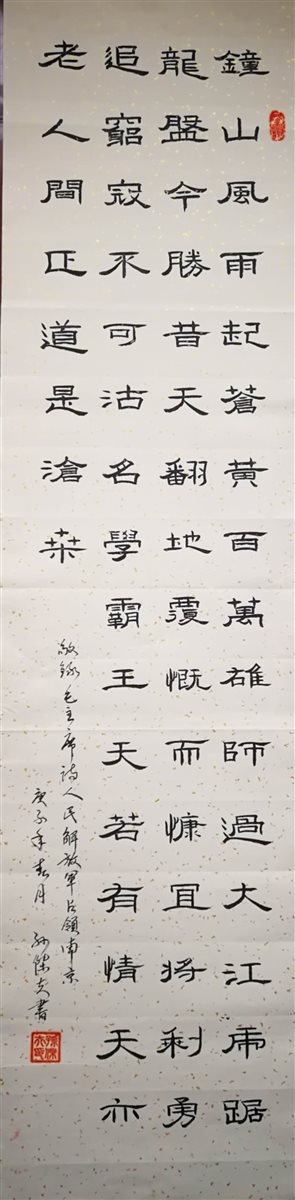 鐘山風雨起蒼黃百萬雄師過大江虎踞
龍盤今勝昔天翻地覆慨而慷宜將剩勇
追窮寇不可沽名學霸王天若有情天亦
老人間正道是滄桑
敬錄毛主席詩人民解放軍占領南京
庚子年春月 孙傑夫書